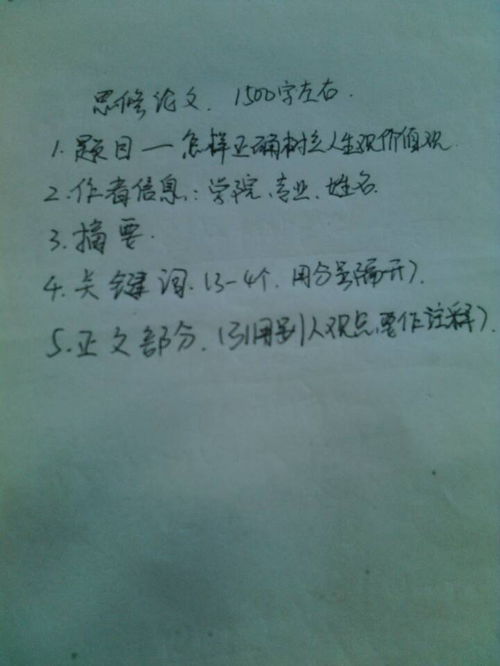 思修论文. 1500字左右.
1. 题目—怎样正确树立人生观价值观
2. 作者信息: 学院、专业、姓名
3. 摘要.
4. 关键词. (3-4个. 用分号隔开).
5. 正文部分. (引用别人观点要作注释).